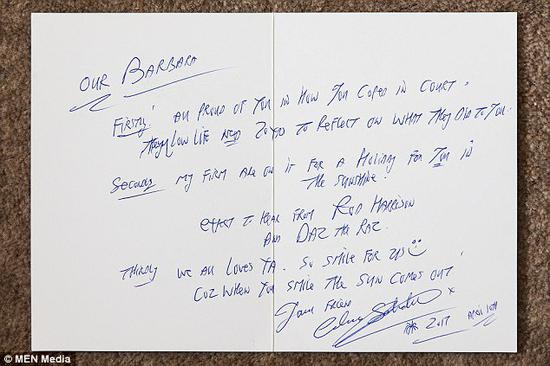 OUR BARBARA
FIRSTLY! AM PROUD OF YOU IN HOW YOU COPED IN COURT.
LOW LIFE NEED TO REFLECT ON WHAT THEY DID TO YOU.
SECONDLY MY FIRM ARE ON IT FOR A HOLIDAY FOR YOU IN
THE SUNSHINE!
EXPECT TO HEAR FROM ROD HARRISON
AND DAZ THE RAZ.
THIRDLY WE ALL LOVES YA. SO SMILE FOR US
COZ WHEN YOU SMILE THE SUN COMES OUT!
YOUR FRIEND
x
2017 APRIL
© MEN Media